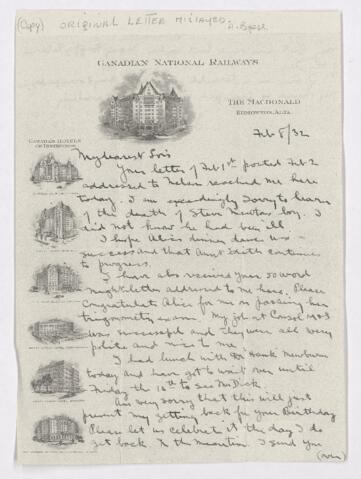 (Copy) ORIGINAL LETTER MISLAYED.
CANADIAN NATIONAL RAILWAYS
THE MACDONALD
EDMONTON, ALTA.
Feb 8/32
CANADA'S HOTELS
OF DISTINCTION
My dearest
Your letter of Feb 1st posted Feb 2
addressed to Nelson reached me here
today. I am exceedingly sorry to hearn
of the death of Steve Newtons boy. I
did not know he had been ill.
I hope Alices dinner dance was
success and that Aunt Edith continues
to progress.
I have also received your 50 word
night letter addressed to me here. Please
Congratulate Alice for me on passing her
trigonometry exam. My job at
was successful and they were all very
polite and nice to me.
I had lunch with Dr Hank
today and have got to wait over until
Friday the to see McDick.
Am very sorry that this will just
prevent my getting back for your Birthday
Please let us celebrate it the day I do
get back. In the meantime I send you
(over)